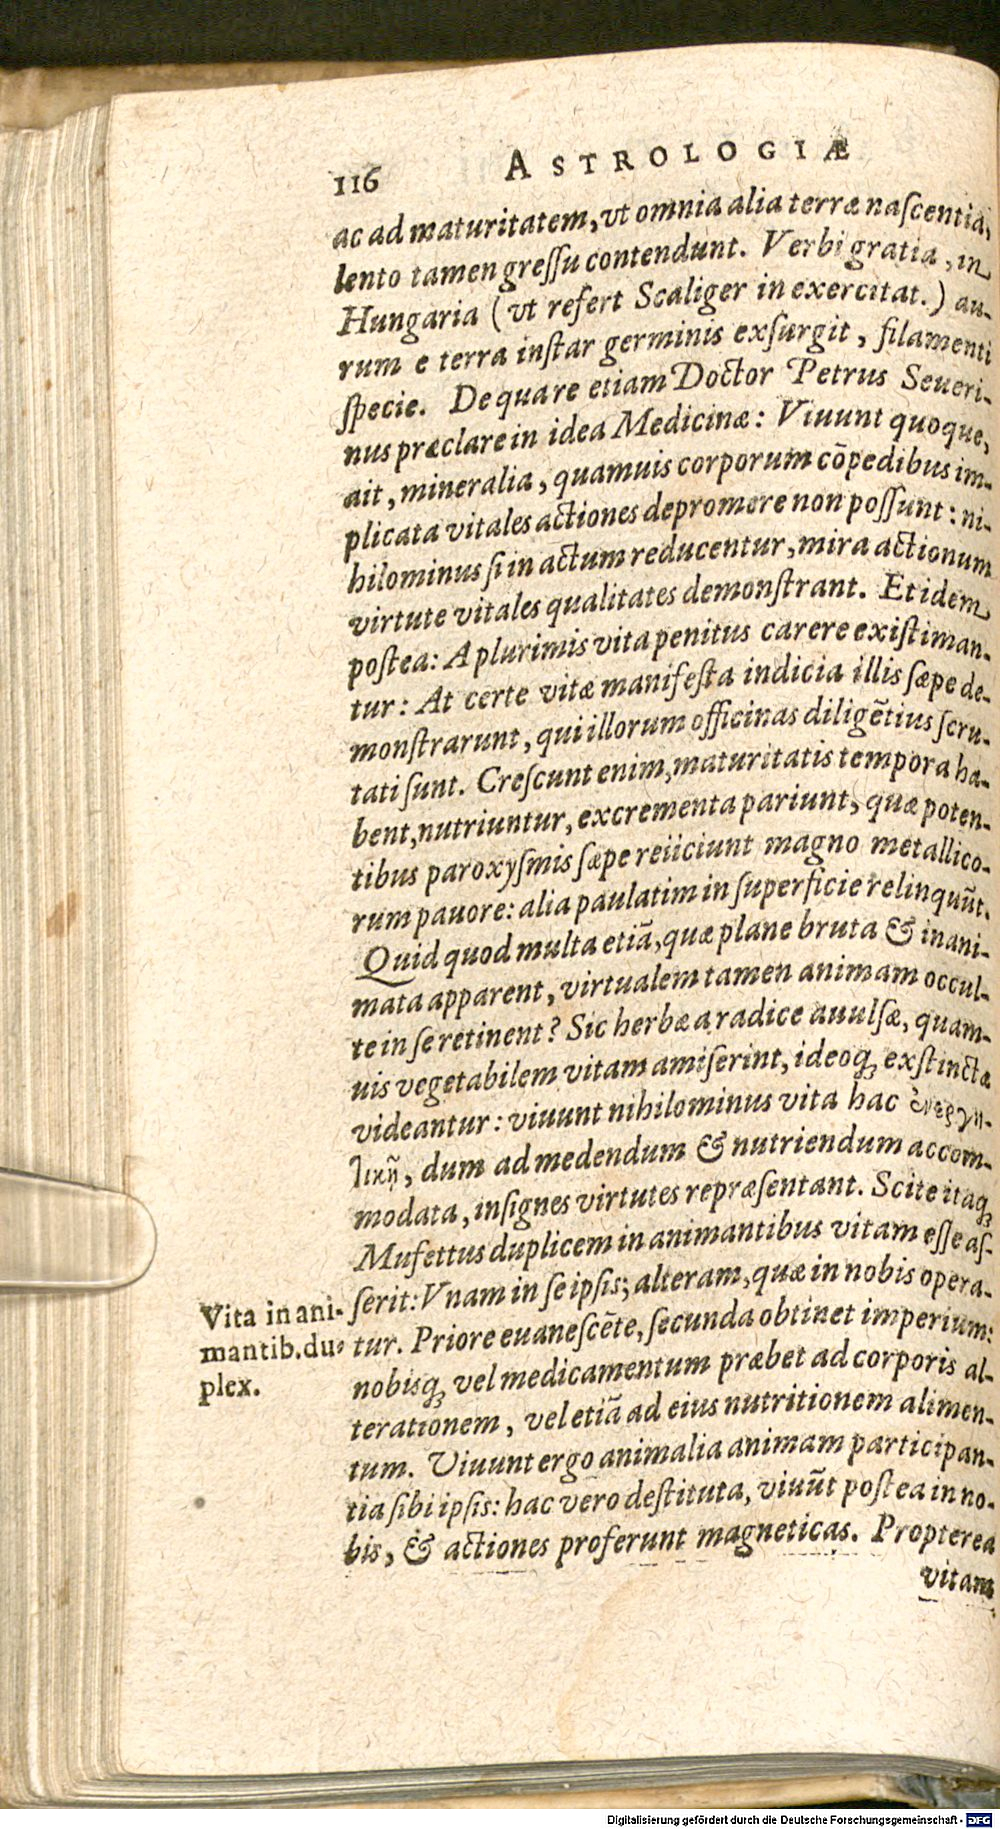 116 ASTROLOGIÆ
ac ad maturitatem, vt omnia alia terræ naſcentia,
lento tamen greſſu contendunt. Verbi gratia, in
Hungaria (vt refert Scaliger in exercitat.) au-
rum e terra inſtar germinis exſurgit, filamenti
ſpecie. De qua re etiam Doctor Petrus Seueri-
nus præclare in idea Medicinæ: Viuunt quoque,
ait, mineralia, quamuis corporum cōpedibus im-
plicata vitales actiones depromere non poſſunt: ni-
hilominus ſi in actum reducentur, mira actionum
virtute vitales qualitates demonſtrant. Et idem
poſtea: A plurimis vita penitus carere exiſtiman-
tur: At certe vitæ manifeſta indicia illis ſæpe de-
monſtrarunt, qui illorum officinas diligētius ſcru-
tati ſunt. Creſcunt enim, maturitatis tempora ha-
bent, nutriuntur, excrementa pariunt, quæ poten-
tibus paroxyſmis ſæpe reiiciunt magno metallico-
rum pauore: alia paulatim in ſuperficie relinquūt.
Quid quod multa etiā, quæ plane bruta & inani-
mata apparent, virtualem tamen animam occul-
te in ſe retinent? Sic herbæ a radice auulſæ, quam-
uis vegetabilem vitam amiſerint, ideoq; exſtinctæ
videantur: viuunt nihilominus vita hac ἐνεργη-
τικῇ, dum ad medendum & nutriendum accom-
modata, inſignes virtutes repræſentant. Scite itaq;
Mufettus duplicem in animantibus vitam eſſe aſ-
ſerit: Vnam in ſe ipſis; alteram, quæ in nobis opera-
tur. Priore euaneſcēte, ſecunda obtinet imperium:
nobisq; vel medicamentum præbet ad corporis al-
terationem, vel etiā ad eius nutritionem alimen-
tum. Viuunt ergo animalia animam participan-
tia ſibi ipſis: hac vero deſtituta, viuūt poſtea in no-
bis, & actiones proferunt magneticas. Propterea
vitam
Vita in ani-
mantib. du-
plex.
Digitalisierung gefördert durch die Deutsche Forschungsgemeinschaft - DFG